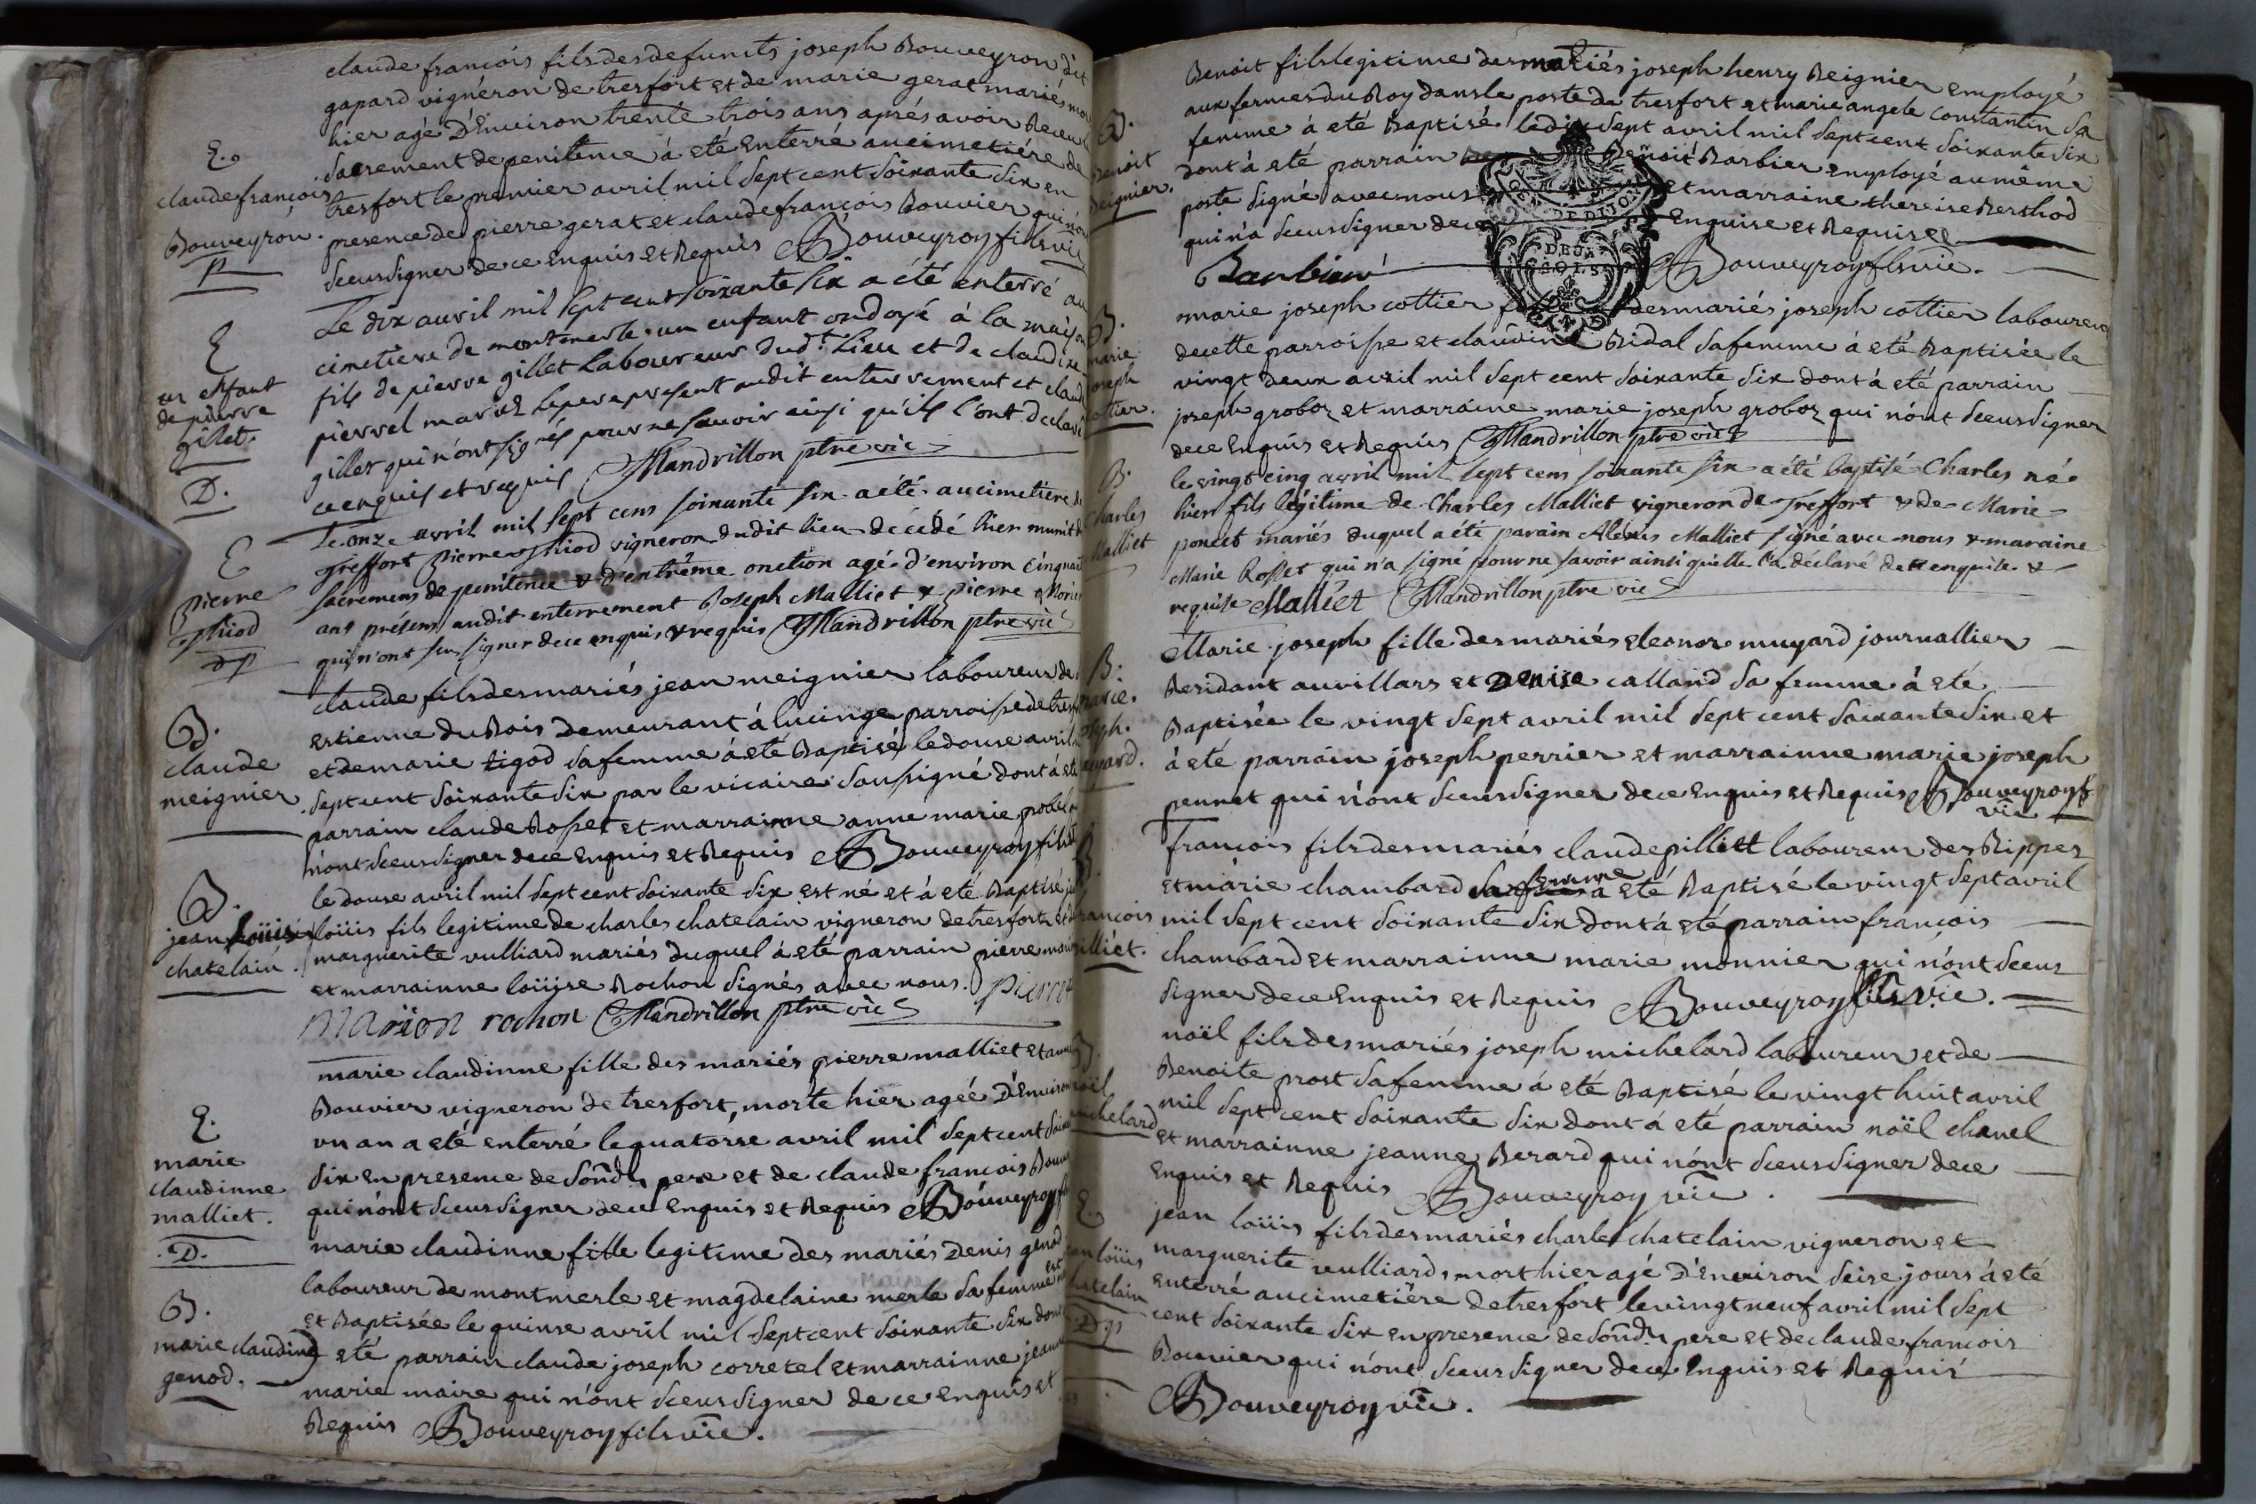 claude françois fils des defuncts joseph Bouveyron dit
gapard vigneron de tresfort et de marie gerat mariés
hier agé D'Environ trente trois ans aprés avoir Receu
E.
sacrement de penitence à eté Enterré au cimetiére de
claude françois
tresfort le premier avril mil sept cent soixante six en
Bouveyron.
presence de pierre gerat et claude françois Bouvier qui
sceu signer de ce Enquis et Requis Bouveyroy fils vic
Le dix avril mil sept cent soixante six a été enterré au
E
cimetiere de montmerle un enfant ondoyé à la maison
un enfant
fils de pierre gillet Laboureur dud.t Lieu et de claudine
de pierre
pierrel mariez le pere present audit enterrement et claude
gillet.
gillet qui n'ont signés pour ne savoir ainsi qu'ils l'ont declaré
D.
ce enquis et requis Mandrillon ptre vic
Le onze avril mil sept cens soixante six a été au cimetiere de
E
Treffort Pierre Phiod vigneron dudit lieu décédé hier munit
Pierre
sacremens de penitence & d'extrême onction agé d'environ Cinquante
Phiod
ans présens audit enterrement Joseph Malliet & Pierre
qui n'ont sçu signer de ce enquis & requis Mandrillon ptre vic
claude fils des mariés jean meignier laboureur de
B.
estienne du Bois demeurant à lucinge parroisse de
claude
et de marie tigod sa femme à eté Baptisé le douse avril
meignier
sept cent soixante six par le vicaire soussigné dont à eté
parrain claude Rosset et marrainne anne marie
n'ont sceu signer de ce Enquis et Requis Bouveyroy fils
B.
le douse avril mil sept cent soixante six est né et à eté Baptisé
jean loüis
loüis fils legitime de charles chatelain vigneron de tresfort et
chatelain.
marguerite vulliard mariés duquel à eté parrain pierre
et marrainne loüise Rochon signés avec nous. Pierre
Marion rochon Mandrillon ptre vic
marie claudinne fille des mariés pierre malliet et
Bouvier vigneron de tresfort, morte hier agée D'Environ
E.
vn an a eté enterré le quatorse avril mil sept cent
marie
six en presence de sond. pere et de claude françois
claudinne
qui n'ont sceu signer de ce Enquis et Requis Bouveyroy
malliet.
D.
marie claudinne fille legitime des mariés Denis genod
laboureur de montmerle et magdelaine merle sa femme est
B.
et Baptisée le quinse avril mil sept cent soixante six dont
marie claudine
eté parrain claude joseph corretel et marrainne jeanne
genod.
marie maire qui n'ont sceu signer de ce enquis et
Requis Bouveyroy fils vic.
Benoit fils legitime des mariés joseph henry Reignier employé
aux fermes du Roy dans le poste de tresfort et marie angele constantin sa
B.
femme à eté Baptisé le dix sept avril mil sept cent soixante six
Benoit
dont à eté parrain Benoit Barbier employé au même
Reignier.
poste signé avec nous et marraine thereise Berthod
qui n'a sceu signer de ce Enquise et Requise
DE DIJON
DEUX
SOLS
Barbier Bouveyroy fils vic.
B.
marie joseph cottier fille des mariés joseph cottier laboureur
marie
de cette parroisse et claudine Ridal sa femme à eté Baptisée le
joseph
vingt deux avril mil sept cent soixante six dont à eté parrain
cottier.
joseph groboz et marraine marie joseph groboz qui n'ont sceu signer
de ce Enquis et Requis Mandrillon ptre vic
B.
le vingt cinq avril mil sept cens soixante six a été baptisé Charles né
Charles
hier fils légitime de Charles Malliet vigneron de Treffort & de Marie
Malliet
poncet mariés duquel a été parain Alexis Malliet signé avec nous & maraine
Marie Rosset qui n'a signé pour ne savoir ainsi qu'elle l'a déclaré de ce enquise &
requise Malliet Mandrillon ptre vic
B.
Marie joseph fille des mariés eleonor muyard journallier
marie.
Residant au villars et Denise calland sa femme à eté
Baptisée le vingt sept avril mil sept cent soixante six et
à eté parrain joseph perrier et marrainne marie joseph
pennet qui n'ont sceu signer de ce Enquis et Requis Bouveyroy f
vic
françois fils des mariés claude pilliet laboureur des Rippes
et marie chambard sa femme a eté Baptisé le vingt sept avril
françois
mil sept cent soixante six dont à eté parrain françois
pilliet.
chambard et marrainne marie monnier qui n'ont sceu
signer de ce Enquis et Requis Bouveyroy fils vic.
noël fils des mariés joseph michelard laboureur et de
B.
Benoite prost sa femme à eté Baptisé le vingt huit avril
noël
mil sept cent soixante six dont à eté parrain noël chanel
michelard
et marrainne jeanne Berard qui n'ont sceu signer de ce
Enquis et Requis Bouveyroy vic.
E.
jean loüis fils des mariés charles chatelain vigneron et
jean loüis
marguerite vulliard, mort hier agé D'Environ seise jours à eté
chatelain
enterré au cimetiére de tresfort le vingt neuf avril mil sept
cent soixante six en presence de sond. pere et de claude françois
Bouvier qui n'ont sceu signer de ce Enquis et Requis
Bouveyroy vic.